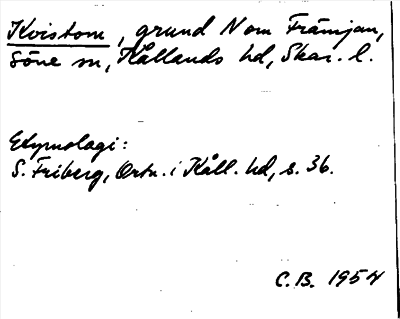 Kvistom, grund N om Främjan,
Söne sn, Kållands hd, Skar. l.
Etymologi:
S. Friberg, Ortn. i Kåll. hd, s. 36.
C.B. 1954